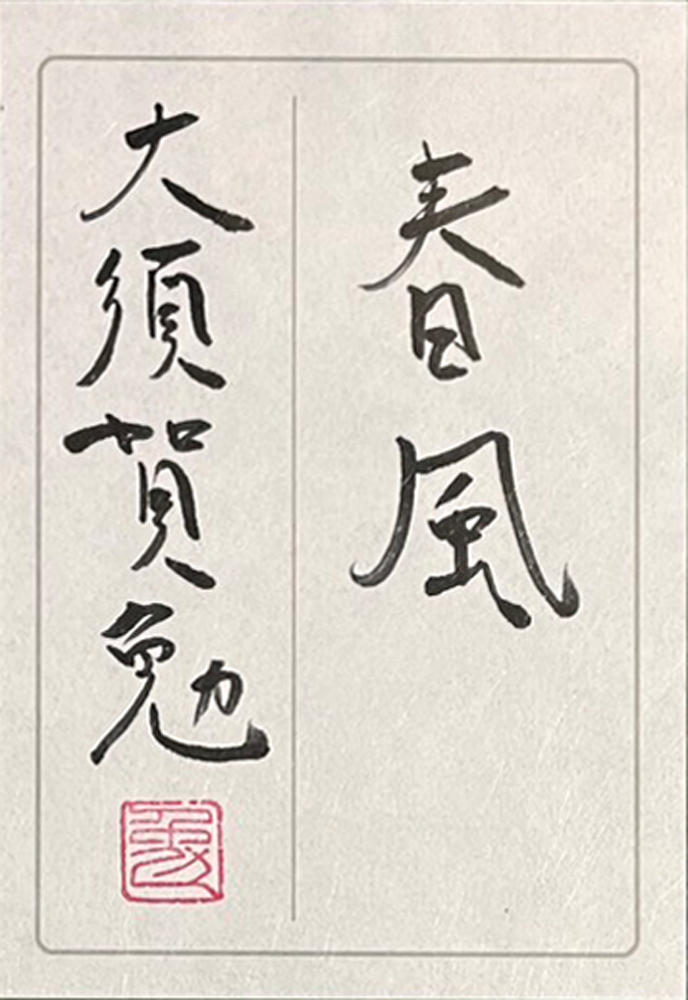 春風
大須賀勉